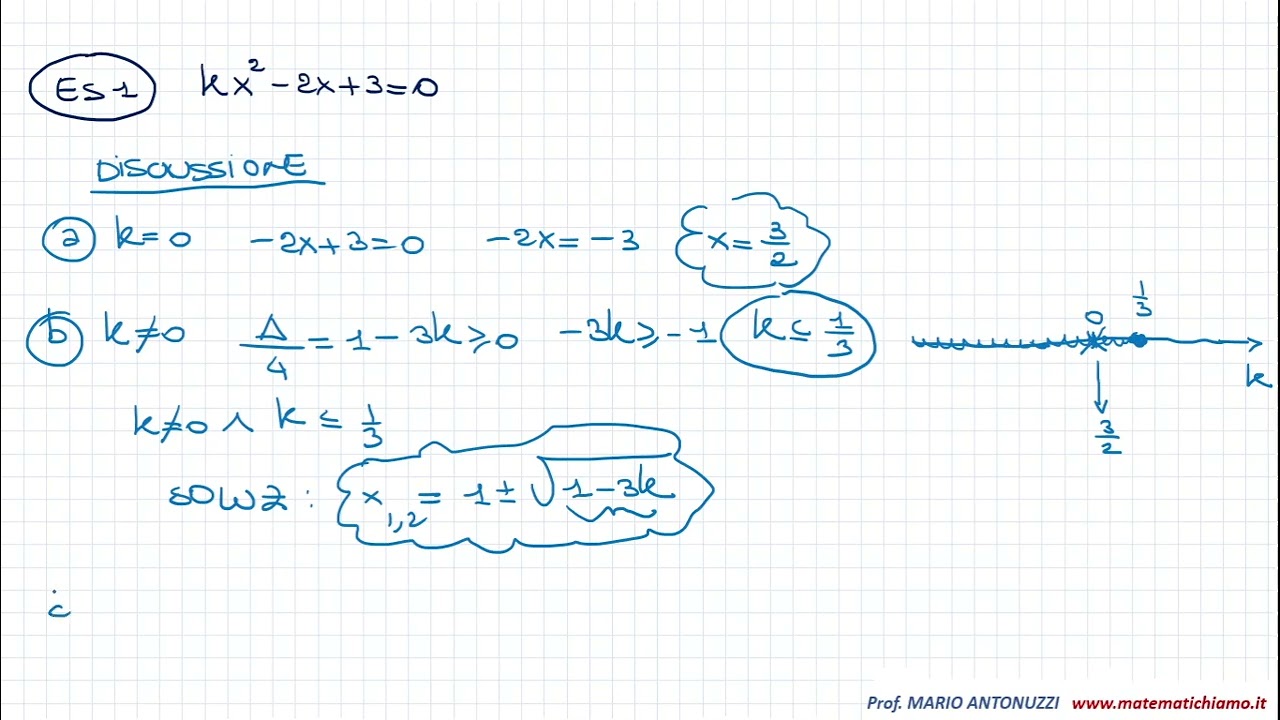 ES 1 kx² - 2x + 3 = 0
DISCUSSIONE
a k = 0 -2x + 3 = 0 -2x = -3 x = 3/2
b k ≠ 0 Δ/4 = 1 - 3k ≥ 0 -3k ≥ -1 k ≤ 1/3
0 1/3
k
3/2
k ≠ 0 ∧ k ≤ 1/3
SOLUZ : x1,2 = 1 ± √1 - 3k
Prof. MARIO ANTONUZZI www.matematichiamo.it